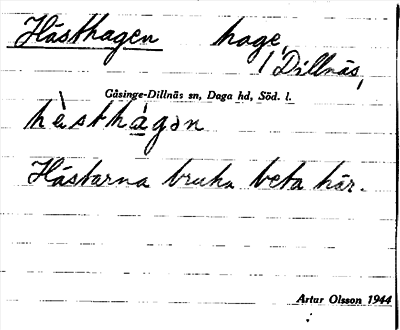 Hästhagen hage,
Dillnäs,
Gåsinge-Dillnäs sn, Daga hd, Söd. l.
hè̀sthàgən
Hästarna bruka beta här.
Artur Olsson 1944